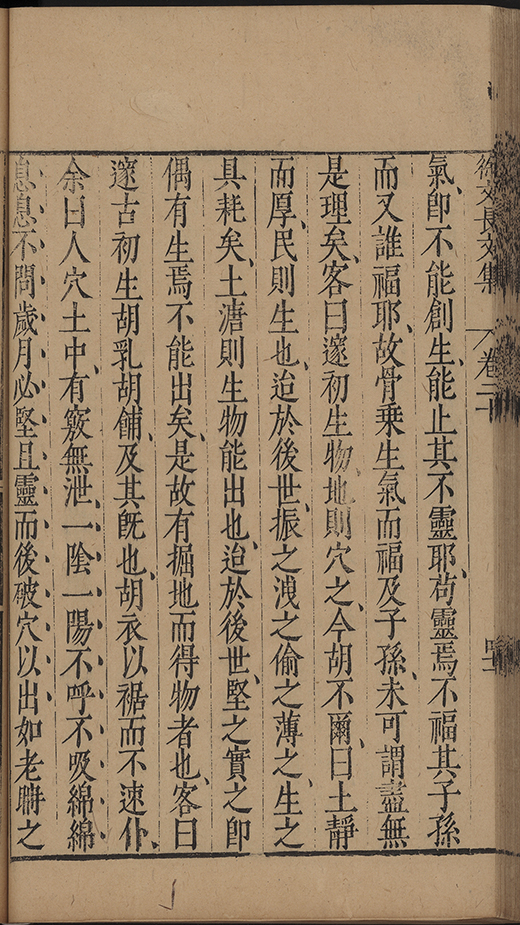 徐文長文集 卷二十 四十一
氣、卽不能創生、能止其不靈耶、苟靈焉不福其子孫
而又誰福耶、故骨乗生氣而福及子孫、未可謂盡無
是理矣、客曰邃初生物地則穴之、今胡不爾、曰土靜
而厚、民則生也、迨於後世、振之洩之偷之薄之、生之
具耗矣、土溏則生物能出也、迨於後世、堅之實之卽
偶有生焉不能出矣、是故有掘地而得物者也、客曰
邃古初生胡乳胡餔、及其旣也、胡衣以裾而不速仆、
余曰人穴土中、有竅無泄、一隂一陽不呼不吸綿綿
息息不問歲月必堅且靈而後破穴以出如老聃之